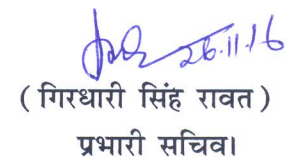 26.11.16
( गिरधारी सिंह रावत )
प्रभारी सचिव।